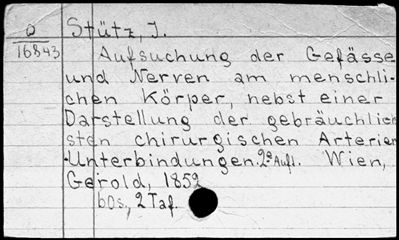 O Stütz, J.
16843
Aufsuchung der Gefässe
und Nerven am menschli-
chen Körper, nebst einer
Darstellung der gebräuchlich
sten chirurgischen Arterien
-Unterbindungen. 2e Aufl. Wien,
Gerold, 1852
60s., 2 Taf.